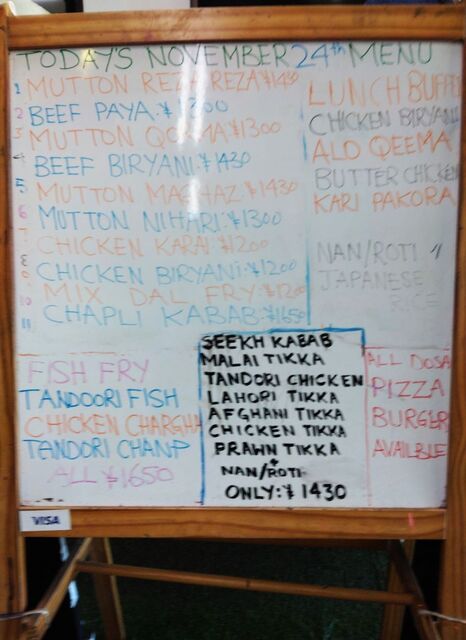 TODAY'S NOVEMBER 24th MENU
1 MUTTON REZA REZA ¥1430
2 BEEF PAYA: ¥1300
3 MUTTON QORMA ¥1300
4 BEEF BIRYANI: ¥1430
5 MUTTON MAGHAZ: ¥1430
6 MUTTON NIHARI: ¥1300
7 CHICKEN KARAI: ¥1200
8 CHICKEN BIRYANI: ¥1200
MIX DAL FRY: ¥1200
10
11 CHAPLI KABAB: ¥1650
LUNCH BUFFE
CHICKEN BIRYANI
ALO QEEMA
BUTTER CHICKEN
KARI PAKORA
NAN/ROTI
JAPANESE
RICE
FISH FRY
TANDOORI FISH
CHICKEN CHARGHA
TANDORI CHANP
ALL ¥1650
SEEKH KABAB
MALAI TIKKA
TANDORI CHICKEN
LAHORI TIKKA
AFGHANI TIKKA
CHICKEN TIKKA
PRAWN TIKKA
+
NAN/ROTI
ONLY: ¥ 1430
ALL DOSA
PIZZA
BURGER
AVAILBLE
VISA